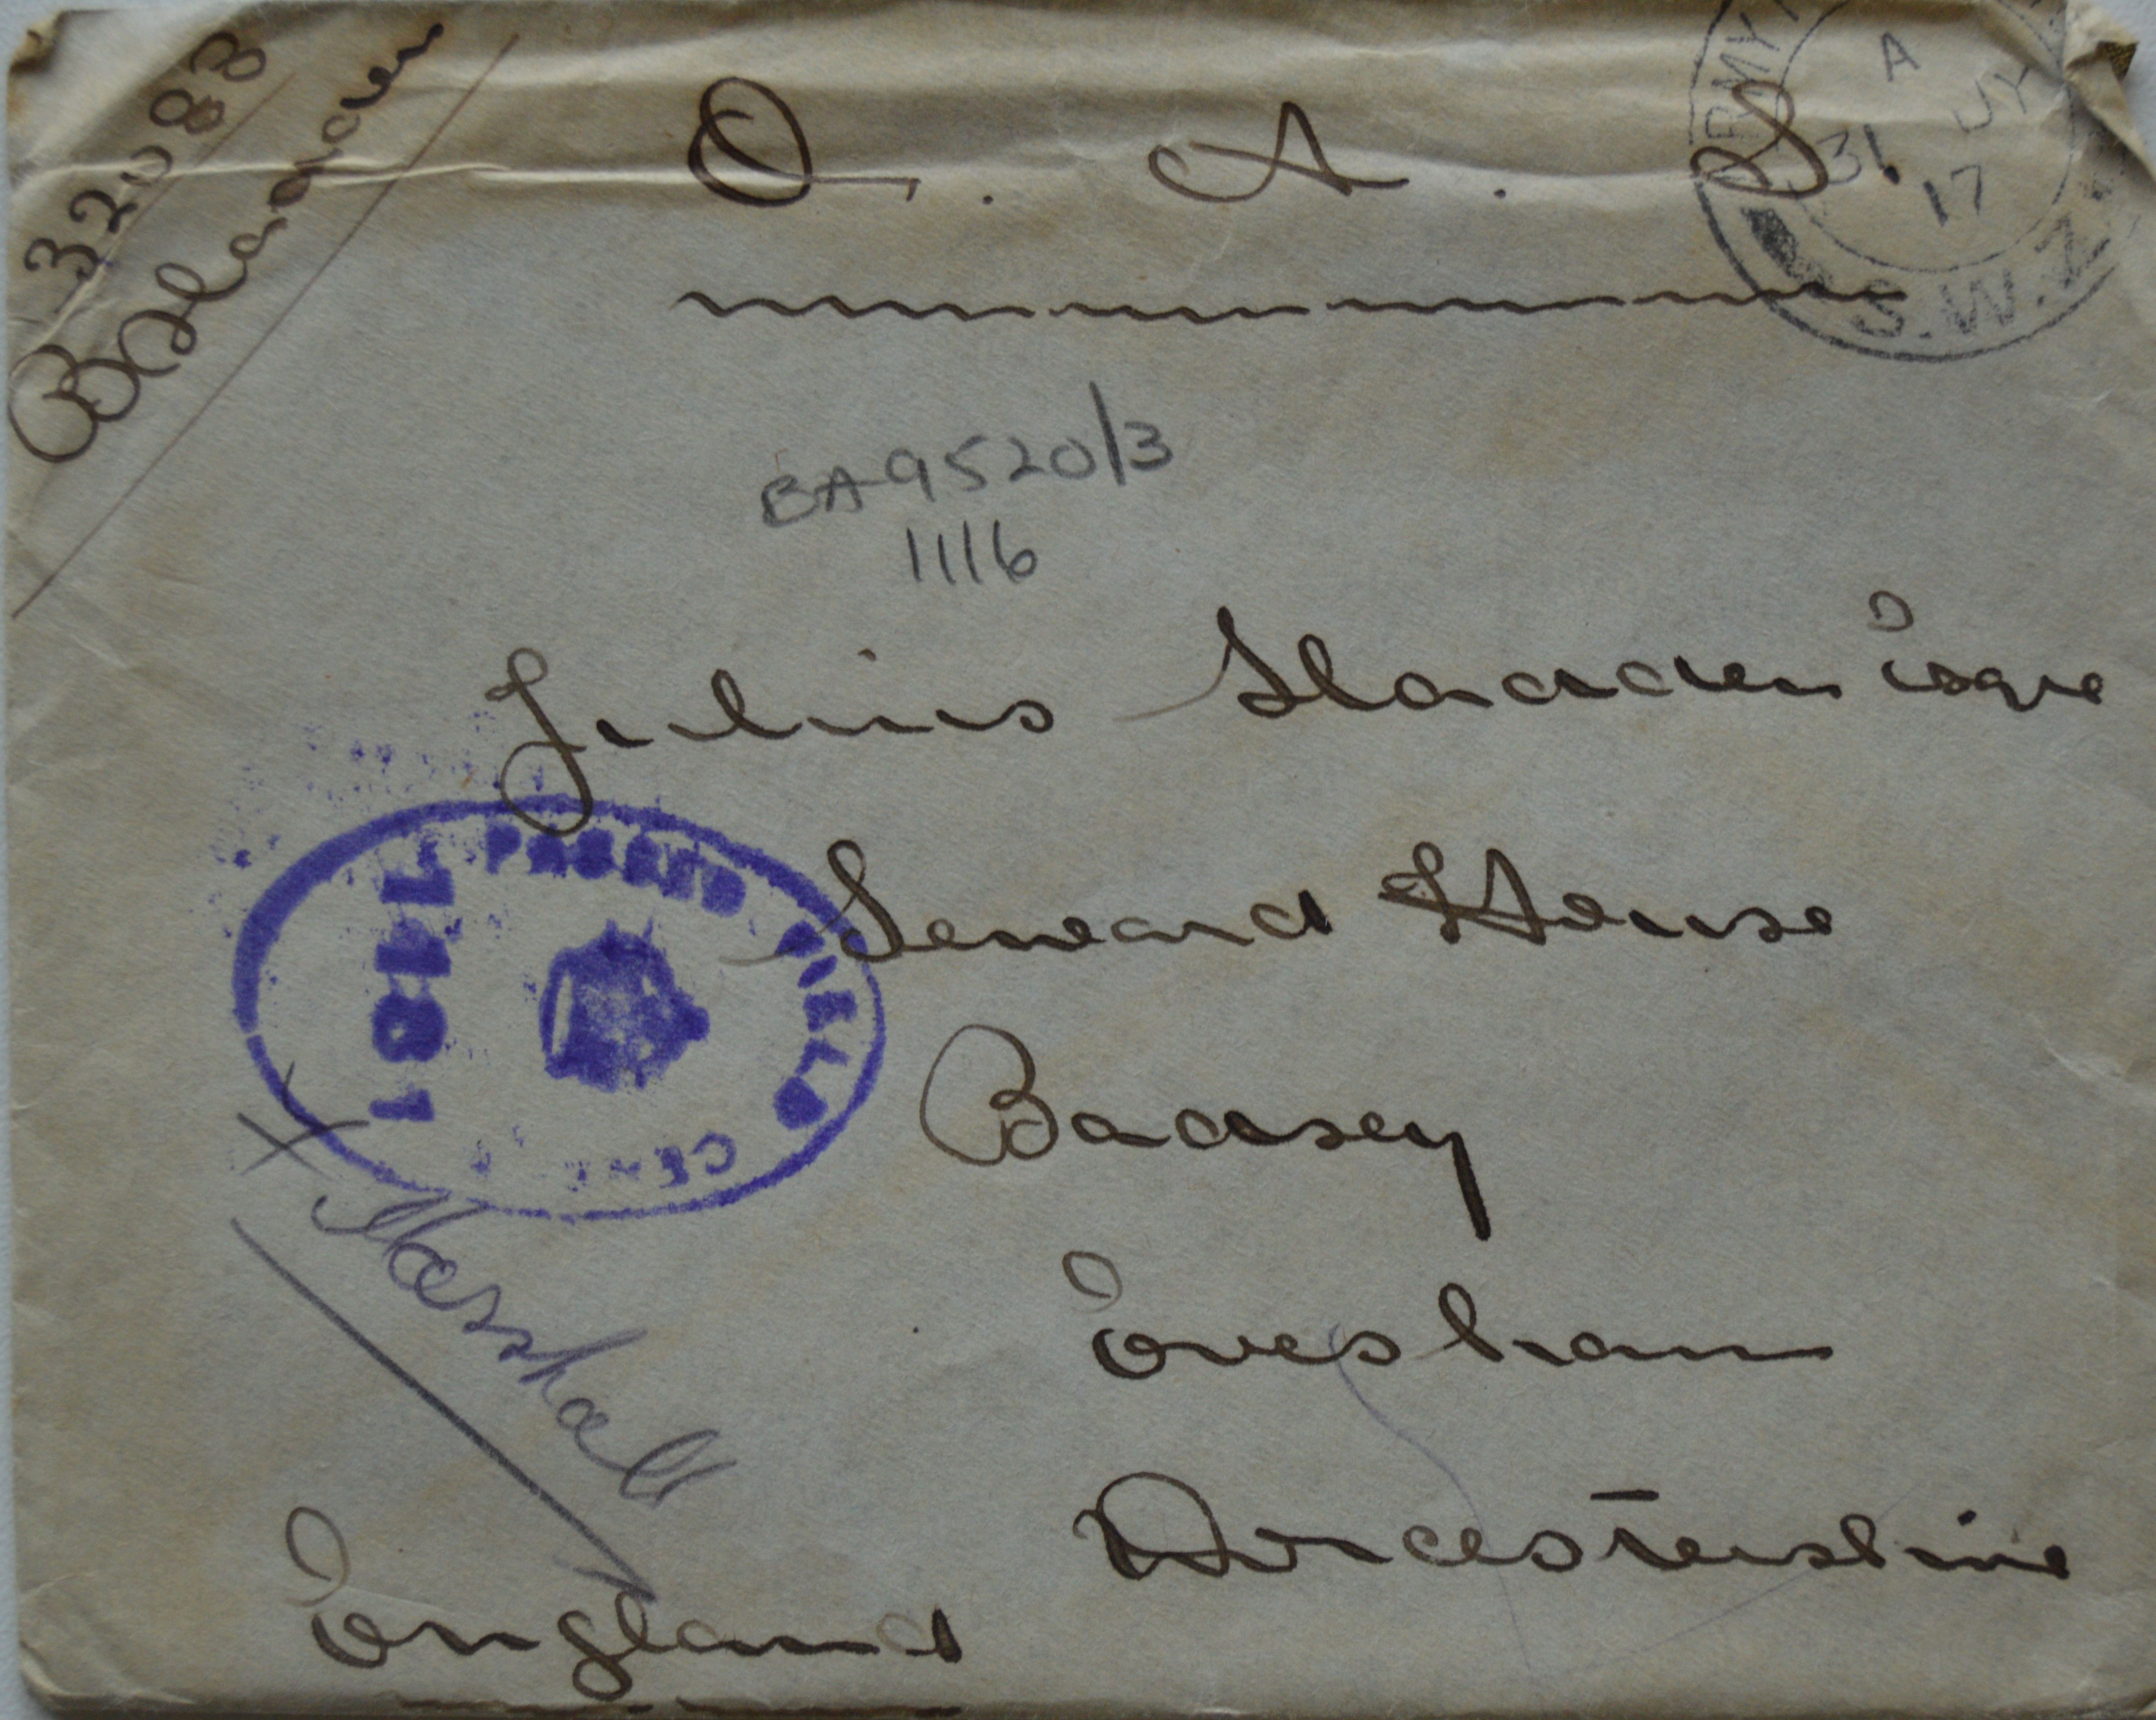 32083
BSladden
O. A. S.
ARMY
A
31 JY
17
S.W.Z.
BA9520/3
1116
Julius Sladden Esqre
Seward House
Badsey
Evesham
Worcestershire
England
PASSED FIELD CENS
1811
Marshall